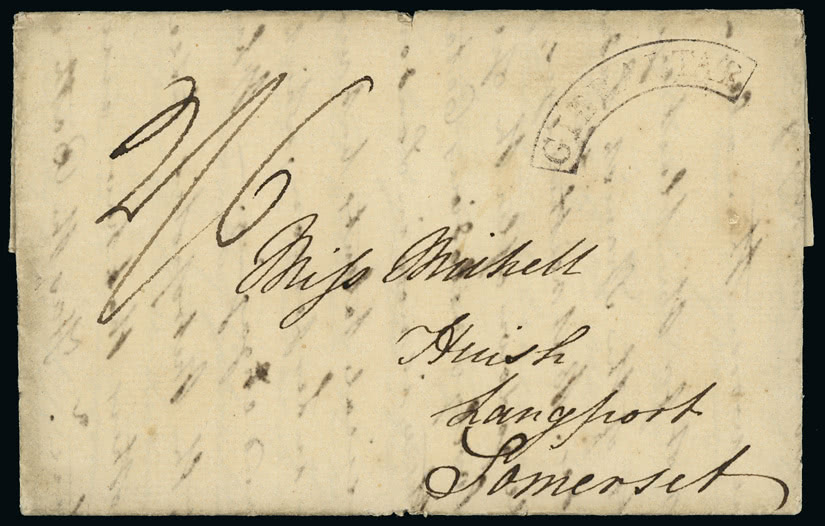 GIBRALTAR
2/6
Miss Michell
Huish
Langport
Somerset